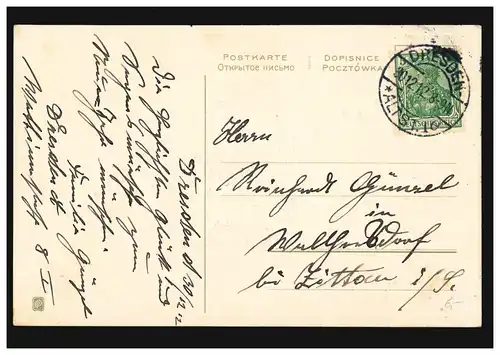 POSTKARTE
ОТКРЫТОЕ ПИСЬМО
DOPISNICE
POCZTÓWKA
DRESDEN
* ALTST. 16
Herrn
Reinhardt Günzel
in
Waltersdorf
bei Zittau i/S.
Dresden d. 30/12 12
Die herzlichsten Glück und
Segenswünsche zum
Neuen Jahre
Familie Günzel
Dresden
8 I